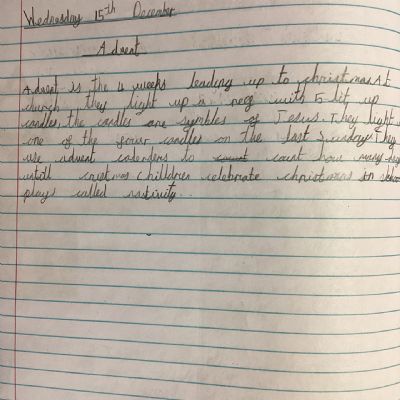 Wednesday 15th December
Advent
Advent is the 4 weeks leading up to christmasst
church they light up a reeg with 5 lit up
candles, the candles are symbles of Jesus. They light
one of the four candles on the last Sunday They
use advent calenders to count how many
untill cristmas childdren celebrate christmas in
plays called nativity.